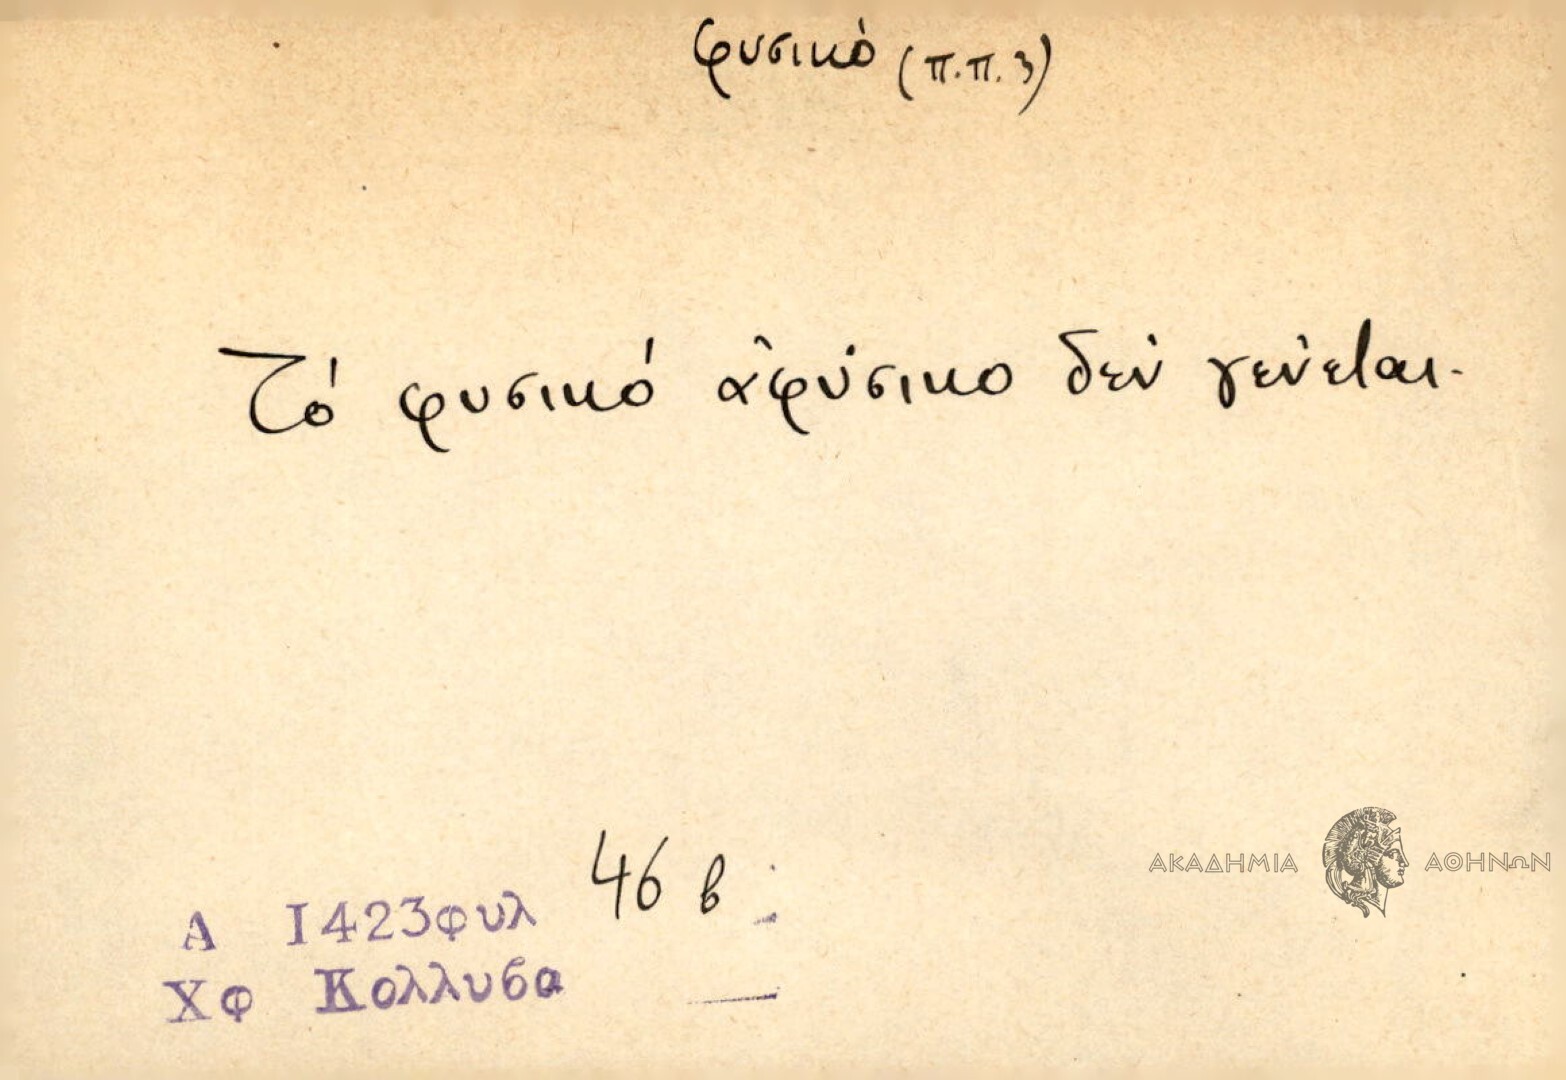 φυσικό (π.π. 3)
Τό φυσικό ἀφύσικο δέν γένεται.
Α 1423φυλ 46 β
Χφ Κολλυβα
ΑΚΑΔΗΜΙΑ ΑΘΗΝΩΝ